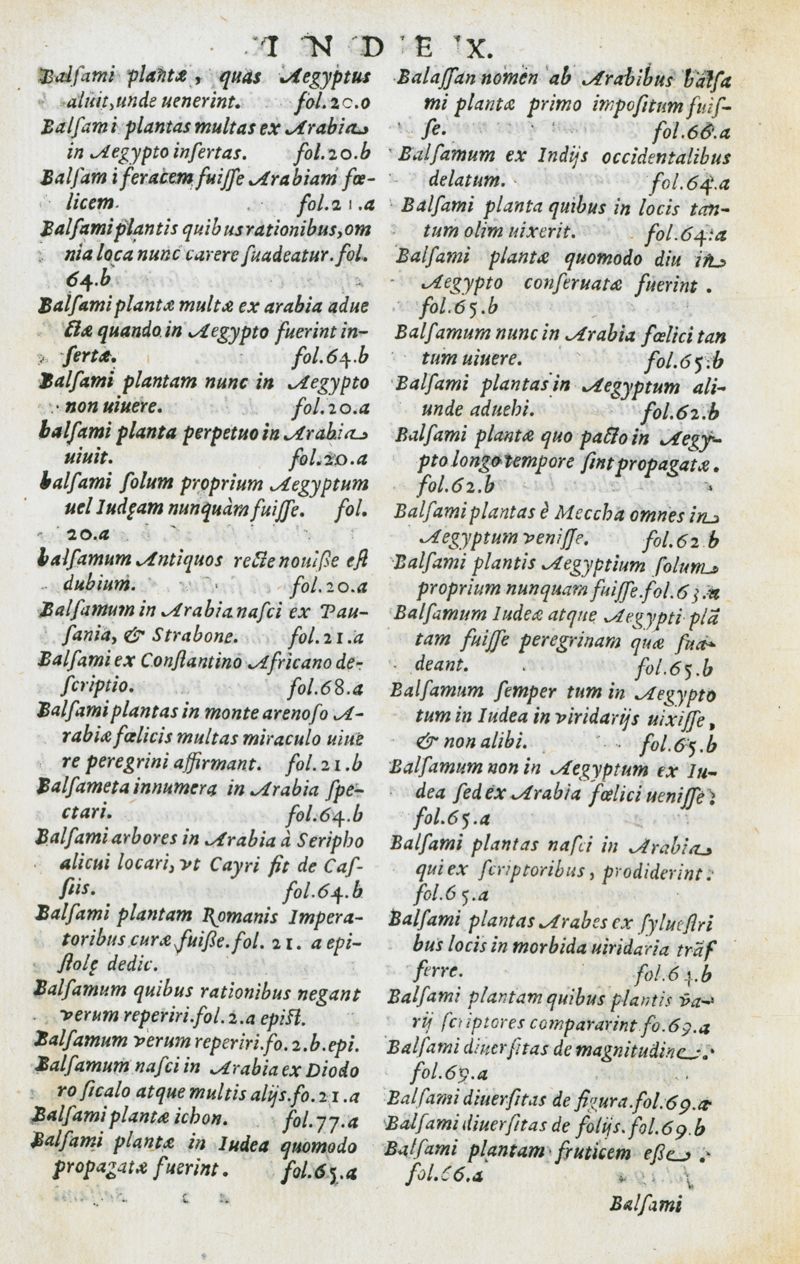 INDEX.
Balſami plantæ, quas Aegyptus
aluit, unde uenerint. fol.20.0
Balſami plantas multas ex Arabia
in Aegypto inſertas. fol.20.b
Balſam i feracem fuiſſe Arabiam fœ-
licem. fol.21.a
Balſami plantis quibus rationibus, om
nia loca nunc carere ſuadeatur. fol.
64.b
Balſami plantæ multæ ex arabia adue
ctæ quando in Aegypto fuerint in-
ſertæ. fol.64.b
Balſami plantam nunc in Aegypto
non uiuere. fol.20.a
balſami planta perpetuo in Arabia
uiuit. fol.20.a
balſami ſolum proprium Aegyptum
uel Iudęam nunquàm fuiſſe. fol.
20.a
balſamum Antiquos recte nouiſſe eſt
dubium. fol.20.a
Balſamum in Arabia naſci ex Pau-
ſania, & Strabone. fol.21.a
Balſami ex Conſtantino Africano de-
ſcriptio. fol.68.a
Balſami plantas in monte arenoſo A-
rabiæ fœlicis multas miraculo uiue
re peregrini affirmant. fol.21.b
Balſameta innumera in Arabia ſpe-
ctari. fol.64.b
Balſami arbores in Arabia à Seripho
alicui locari, vt Cayri fit de Caſ-
ſiis. fol.64.b
Balſami plantam Romanis Impera-
toribus curæ fuiſſe. fol. 21. a epi-
ſtolę dedic.
Balſamum quibus rationibus negant
verum reperiri. fol.2.a epiſt.
Balſamum verum reperiri. fo.2.b.epi.
Balſamum naſci in Arabia ex Diodo
ro ſicalo atque multis alijs. fo.21.a
Balſami plantæ icbon. fol.77.a
Balſami plantæ in Iudea quomodo
propagatæ fuerint. fol.65.a
Balaſſan nomen ab Arabibus balſa
mi plantæ primo impoſitum fuiſ-
ſe. fol.66.a
Balſamum ex Indijs occidentalibus
delatum. fol.64.a
Balſami planta quibus in locis tan-
tum olim uixerit. fol.64.a
Balſami plantæ quomodo diu in
Aegypto conſeruatæ fuerint.
fol.65.b
Balſamum nunc in Arabia fœlici tan
tum uiuere. fol.65.b
Balſami plantas in Aegyptum ali-
unde aduehi. fol.62.b
Balſami plantæ quo pacto in Aegy-
pto longo tempore ſint propagatæ.
fol.62.b
Balſami plantas è Meccha omnes in
Aegyptum veniſſe. fol.62 b
Balſami plantis Aegyptium ſolum
proprium nunquam fuiſſe. fol.63.a
Balſamum Iudeæ atque Aegypti plā
tam fuiſſe peregrinam quæ ſua-
deant. fol.65.b
Balſamum ſemper tum in Aegypto
tum in Iudea in viridarijs uixiſſe,
& non alibi. fol.65.b
Balſamum non in Aegyptum ex Iu-
dea ſed ex Arabia fœlici ueniſſe:
fol.65.a
Balſami plantas naſci in Arabia
qui ex ſcriptoribus, prodiderint:
fol.65.a
Balſami plantas Arabes ex ſylueſtri
bus locis in morbida uiridaria trāſ
ferre. fol.64.b
Balſami plantam quibus plantis va-
rij ſcriptores compararint fo.69.a
Balſami diuerſitas de magnitudine.
fol.69.a
Balſami diuerſitas de figura. fol.69.a
Balſami diuerſitas de folijs. fol.69.b
Balſami plantam fruticem eſſe.
fol.66.a
Balſami